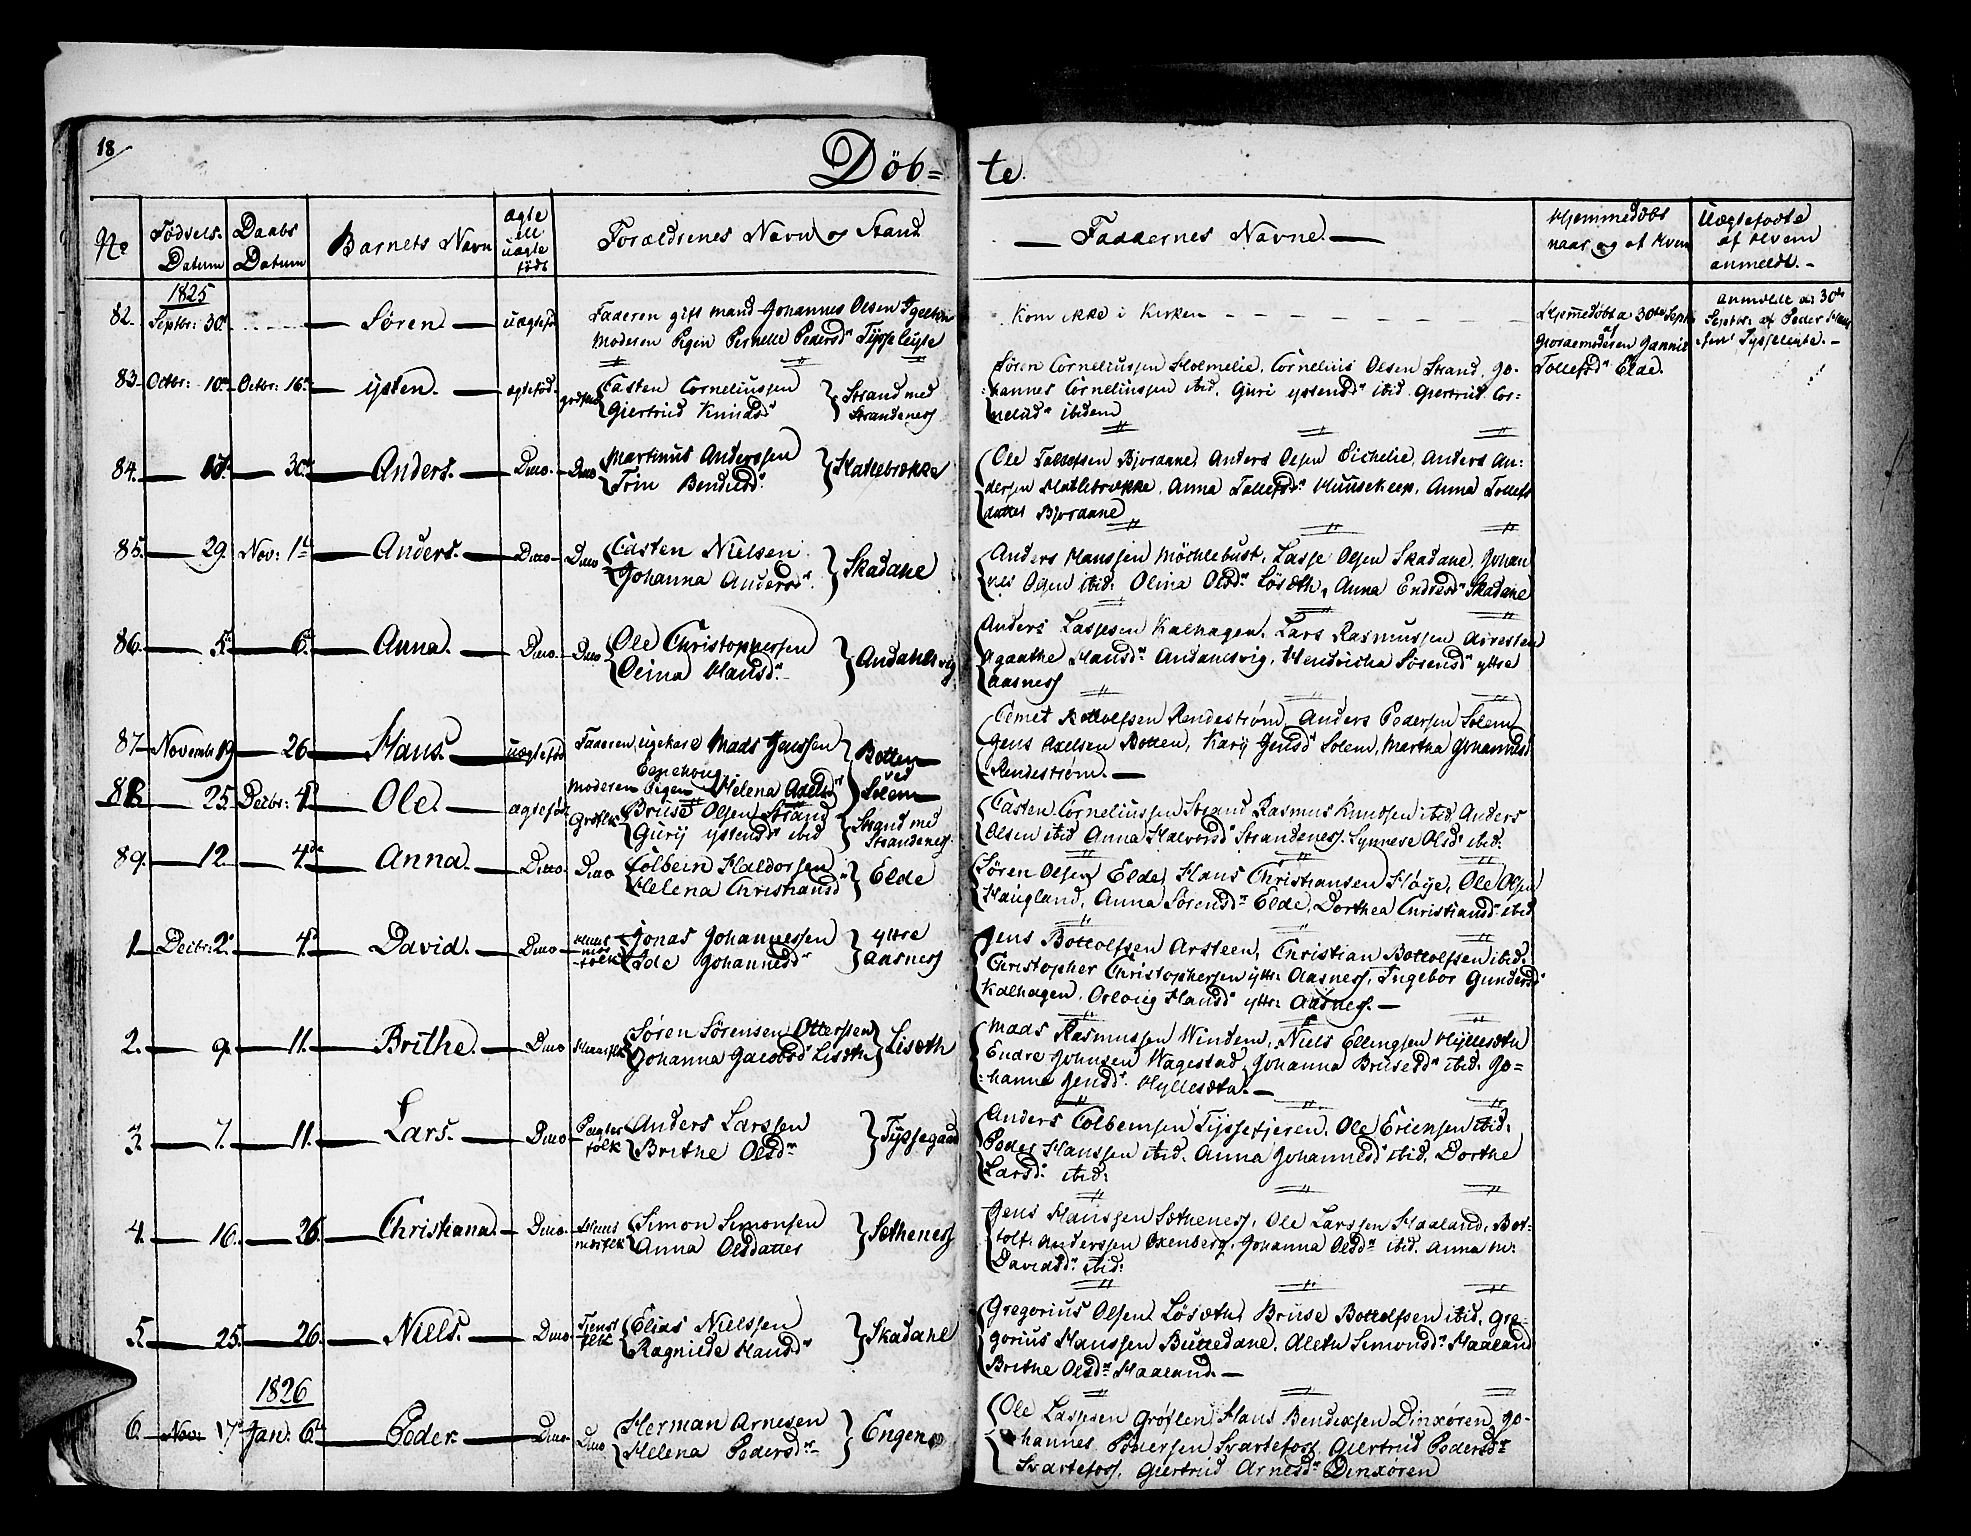 18
Döb= te.
No
Fødsels Datum
Daabs Datum
Barnets Navn
ægte ell uægte født
Forældrenes Navn og Stand
Faddernes Navne.
Hjemmedøbt naar og af hvem
Uægtefødte af hvem anmeldt.
1825
82. Septbr: 30 Søren uægtefød
Faderen gift mand Johannes Olsen
Moderen Pigen Pernelle Pedersd.
Kom ikke i Kirken
Hjemmedøbt d 30te Septb
af
Jordemoderen Jannik
Tollefsd. Elde.
anmeldt d. 30te
Septbr. af Peder Han
83. Octbr: 10 Octbr: 16 ysten ægtefød.
Casten Corneliussen
Giertrud Knudsd
Strand med
Strandeness
Søren Corneliussen Holmelie, Cornelius Olsen Strand, Jo-
hannes Corneliussen ibid. Guri ystensd ibid. Giertrud Cor-
nelisd ibidem
84. 17. 30 Anders. Duo. Duo
Martinus Anderssen
Trin Bendixsd
Hatlebrække
Ole Tollefsen Bjordane, Anders Olsen Eichelie, Anders An-
dersen Hatlebrække, Anna Tollefsd. Huusekeep, Anna Tollefs
datter Bjordane
85. 29. Nov: 1 Anders. Duo Duo
Casten Nielsen
Johanna Andersd.
Skadane
Anders Hanssen Möchlebust, Lasse Olsen Skadane, Johan
nes Olsen ibid: Olina Olsd. Løsæth, Anna Endresd Skadane
86. 5. 6. Anna. Duo. Duo
Ole Christophersen
Olina Hansd.
Andahlsvig
Anders Lassesen Kalhagen, Lars Rasmussen
Agaathe Hansd. Andahlsvig, Hendricha Sørensd yttre
Aasness
87 Novembr 19 26 Hans. uægtefød
Faderen, ugekarl Mads Jenssen
Moderen Pigen Helena Axelsd
Botten
Solem
Botolfsen Rendestrøm, Anders Pedersen Solem
Jens Axelsen Botten, Kary Jensd Solem, Martha Johannesd
Rendestrøm.
88 25. Decbr: 4. Ole. ægtefød
Bruse Olsen Strand
Gury ystensd ibid
Strand med
Strandeness.
Casten Corneliussen Strand Rasmus Knudsen ibid Anders
Olsen ibid Anna Halvorsd Strandeness. Synneve Olsd ibid.
89. 12 4de Anna. Duo. Duo
Colbein Haldorsen
Helena Christiansd
Elde
Søren Olsen Elde, Hans Christiansen Høye, Ole Olsen
Haugland, Anna Sørensd. Elde, Dorthea Christiansd ibid
1. Decbr: 2 4. David. Duo
Jonas Johannessen
Ide Johannesd
yttre
aasness
Jens Bottolfsen Arsteen, Christian Bottolfsen ibid.
Christopher Christophersen yttr: Aasness, Ingebor Gundersd
Kalhagen, Hansd yttr: Aasness.
2. 9. 11. Brithe. Duo
Søren Sørensen Ottersten
Johanna Jacobsd Lisæth
Lisæth
Mads Rasmussen Windem, Niels Ellingsen Hyllesæth
Endre Johnsen Wagestad Johanna Brusesd. ibid. Jo=
hanne Jensd. Hyllesæth.
3. 7. 11. Lars. Duo
Pagter
folk
Anders Larssen
Brithe Olsd
Tyssegaard
Anders Colbensen Tyssekjeren, Ole Ericksen ibid.
Peder Hanssen ibid. Anna Johannesd ibid. Dorthe
Larsd. ibid:
4. 16. 26. Christiana. Duo.
Simon Simonsen
Anna Olsdatter
Sætheness
Jens Hanssen Sætheness, Ole Larssen Haaland, Bot=
tolf Anderssen Oxenberg, Johanna Olsd. ibid. Anna M:
Davidsd. ibid:
5. 25. 26. Niels. Duo
Tjenst
folk
Elias Nielssen
Ragnilde Hansd
Skadane
Gregorius Olsen Løsæth, Bruse Bottolfsen ibid, Gre-
gorius Hanssen Buttedane, Aleth Simonsd. Haaland
Brithe Olsd. Haaland.
1826
6. Nov: 17 Jan: 6 Peder. Duo. Duo
Herman Arnesen
Helena Pedersd
Engen
Ole Lassesen Grøflen Hans Bendixsen Dinxøren, Jo-
hannes Pedersen Svartefoss, Giertrud Pedersd
Svartefoss, Giertrud Arnesd. Dinxøren